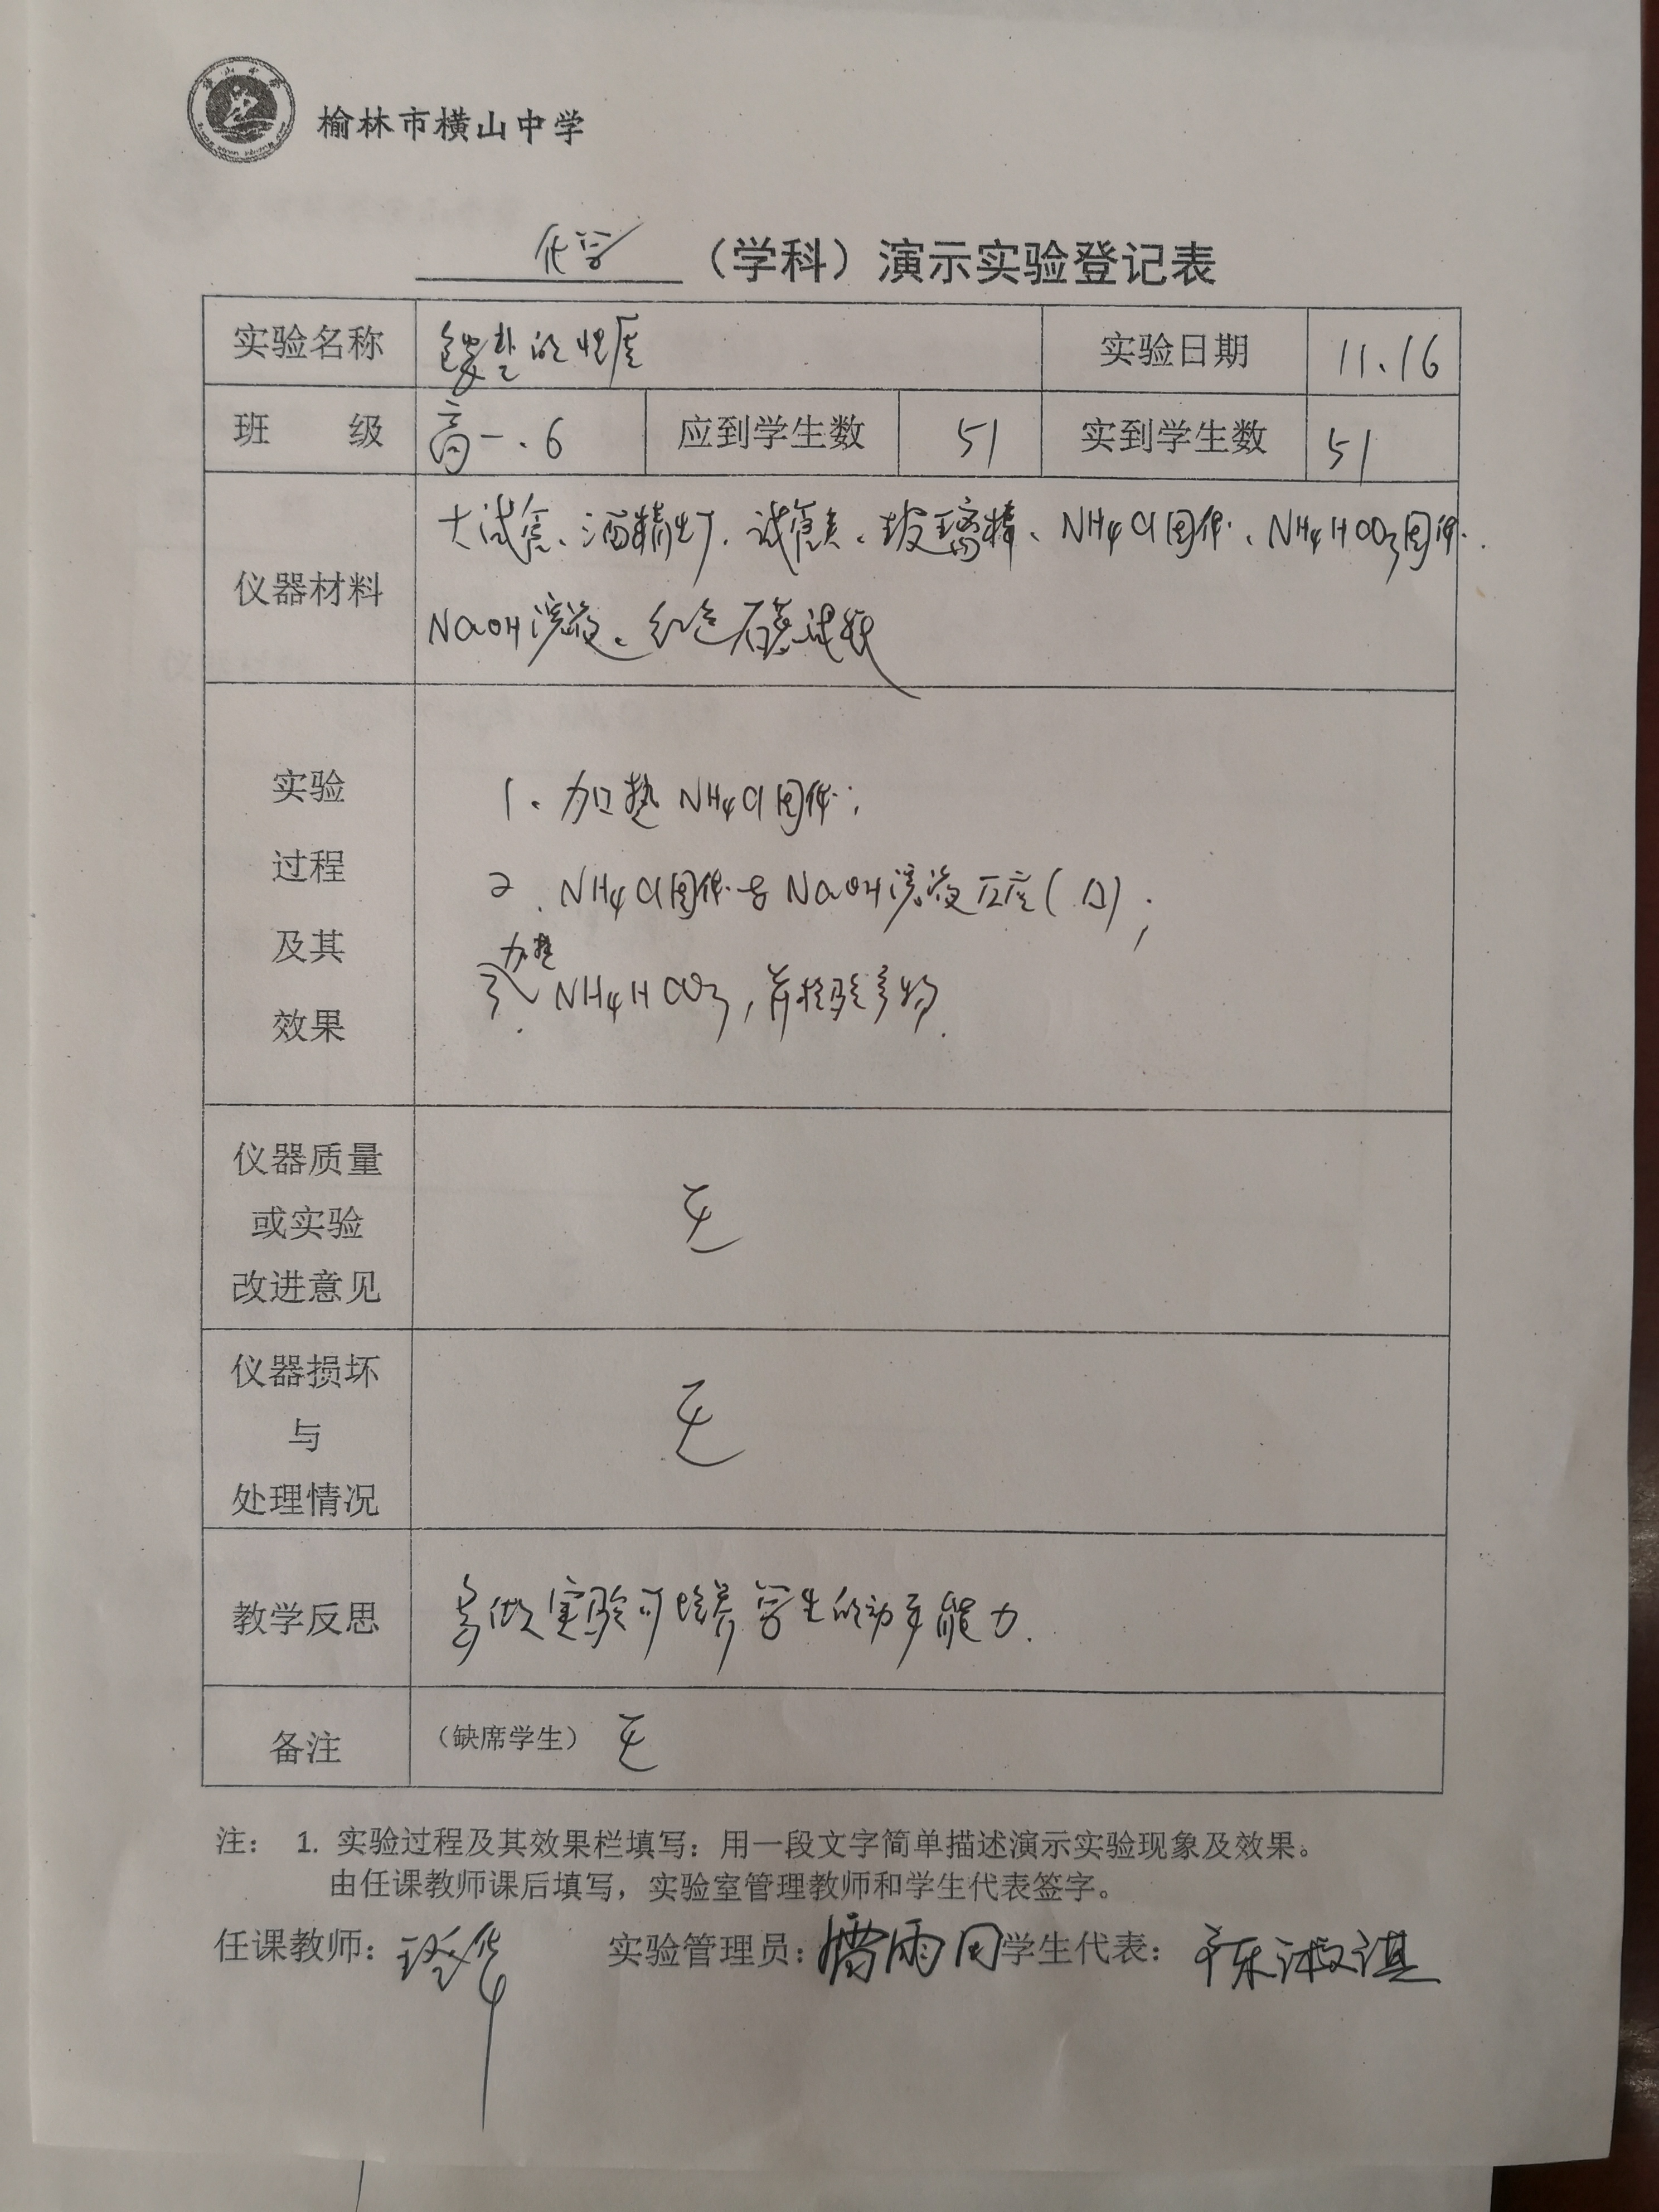 榆林市横山中学
化学（学科）演示实验登记表
实验名称 铵盐的性质 实验日期 11.16
班 级 高一.6 应到学生数 51 实到学生数 51
仪器材料
大试管、酒精灯、试管夹、玻璃棒、NH4Cl固体、NH4HCO3固体.
NaOH溶液、红色石蕊试纸
实验
过程
及其
效果
1、加热NH4Cl固体;
2.NH4Cl固体与NaOH溶液反应(△);
3.加热NH4HCO3,并检验产物.
仪器质量
或实验
改进意见
无
仪器损坏
与
处理情况
无
教学反思 多做实验可培养学生的动手能力.
备注 （缺席学生）无
注： 1. 实验过程及其效果栏填写：用一段文字简单描述演示实验现象及效果。
由任课教师课后填写，实验室管理教师和学生代表签字。
任课教师： 实验管理员： 雨 学生代表：陈淑淇